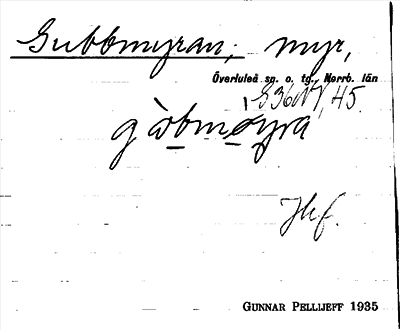 Gubbmyran; myr,
Överluleå sn. o. tg., Norrb. län
S36NV, 45.
gòbmøyra
GUNNAR PELLIJEFF 1935